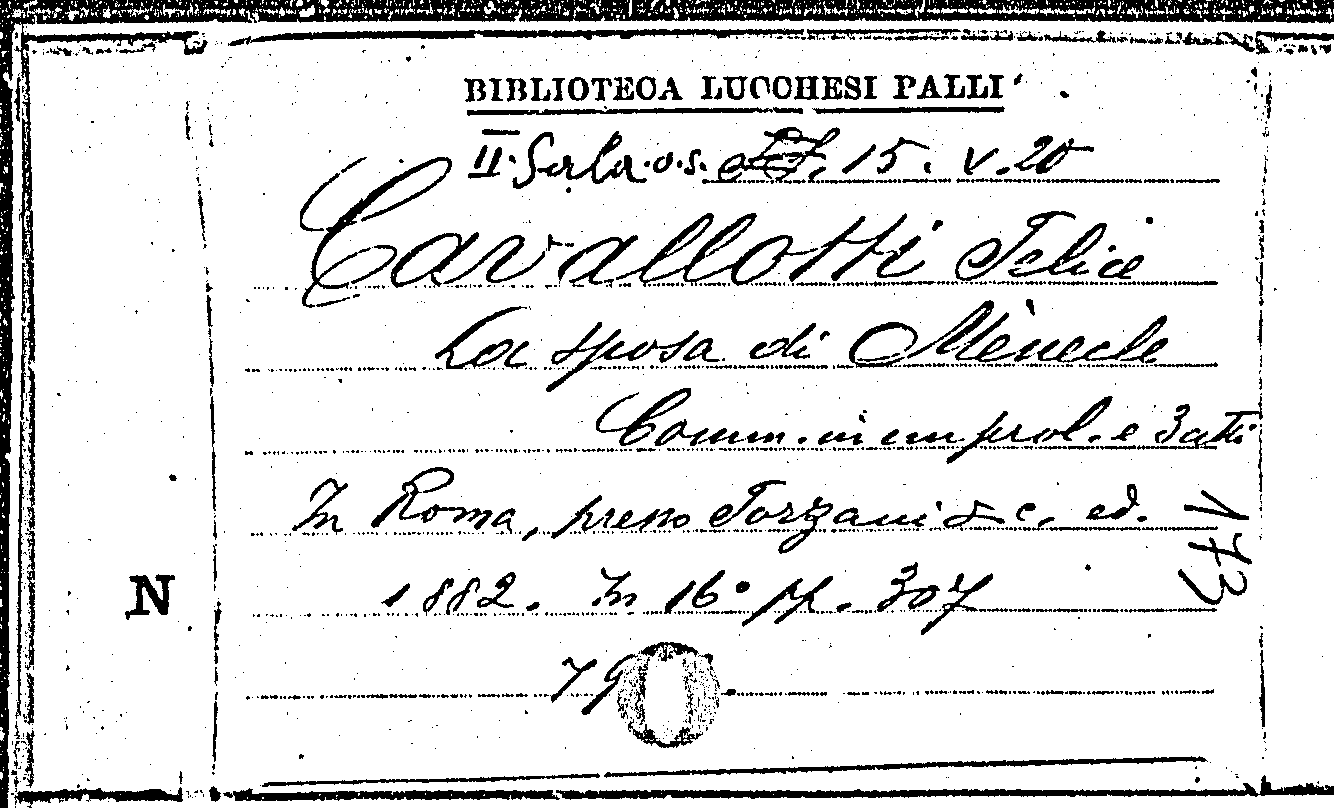 BIBLIOTECA LUCCHESI PALLI
II. Sala. o. s. 15. V. 20
Cavallotti Felice
La sposa di Mènecle
Comm. in un prol. e 3 atti
In Roma, presso Forzani & c. ed.
1882. In 16° pp. 307
173
N
79